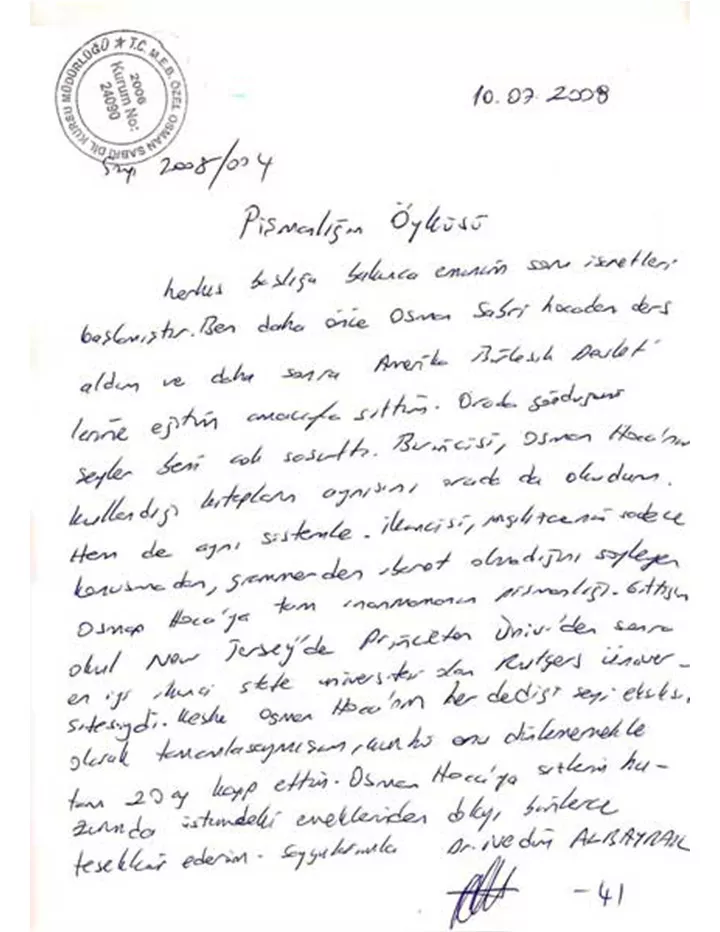 T.C. M.E.B. ÖZEL OSMAN SABRİ DİL KURSU MÜDÜRLÜĞÜ ★
2006
Kurum No:
24090
10.07.2008
Sayı 2008/004
Pişmanlığın Öyküsü
herkes başlığa bakınca eminim soru işaretleri
başlamıştır. Ben daha önce Osman Sabri hocadan ders
aldım ve daha sonra Amerika Birleşik Devlet
lerine eğitim amacıyla gittim. Orada gördüğüm
şeyler beni çok şaşırttı. Birincisi, Osman Hoca'nın
kullandığı kitapların aynısını orada da okudum.
Hem de aynı sistemle. İkincisi, ingilizcenin sadece
konuşmadan, gramerden ibaret olmadığını söyleyen
Osman Hoca'ya tam inanmamanın pişmanlığı. Gittiğim
okul New Jersey'de Princeton Üniv.'den sonra
en iyi ikinci state üniversitesi olan Rutgers Üniver-
sitesiydi. Keşke Osman Hoca'nın her dediği şeyi eksiksiz
olarak tamamlasaymışım, çünkü onu dinlememekle
tam 20 ay kayıp ettim. Osman Hoca'ya sizlerin hu-
zurunda üstümdeki emeklerinden dolayı binlerce
teşekkür ederim. Saygılarımla Dr. ALBAYRAK
-41